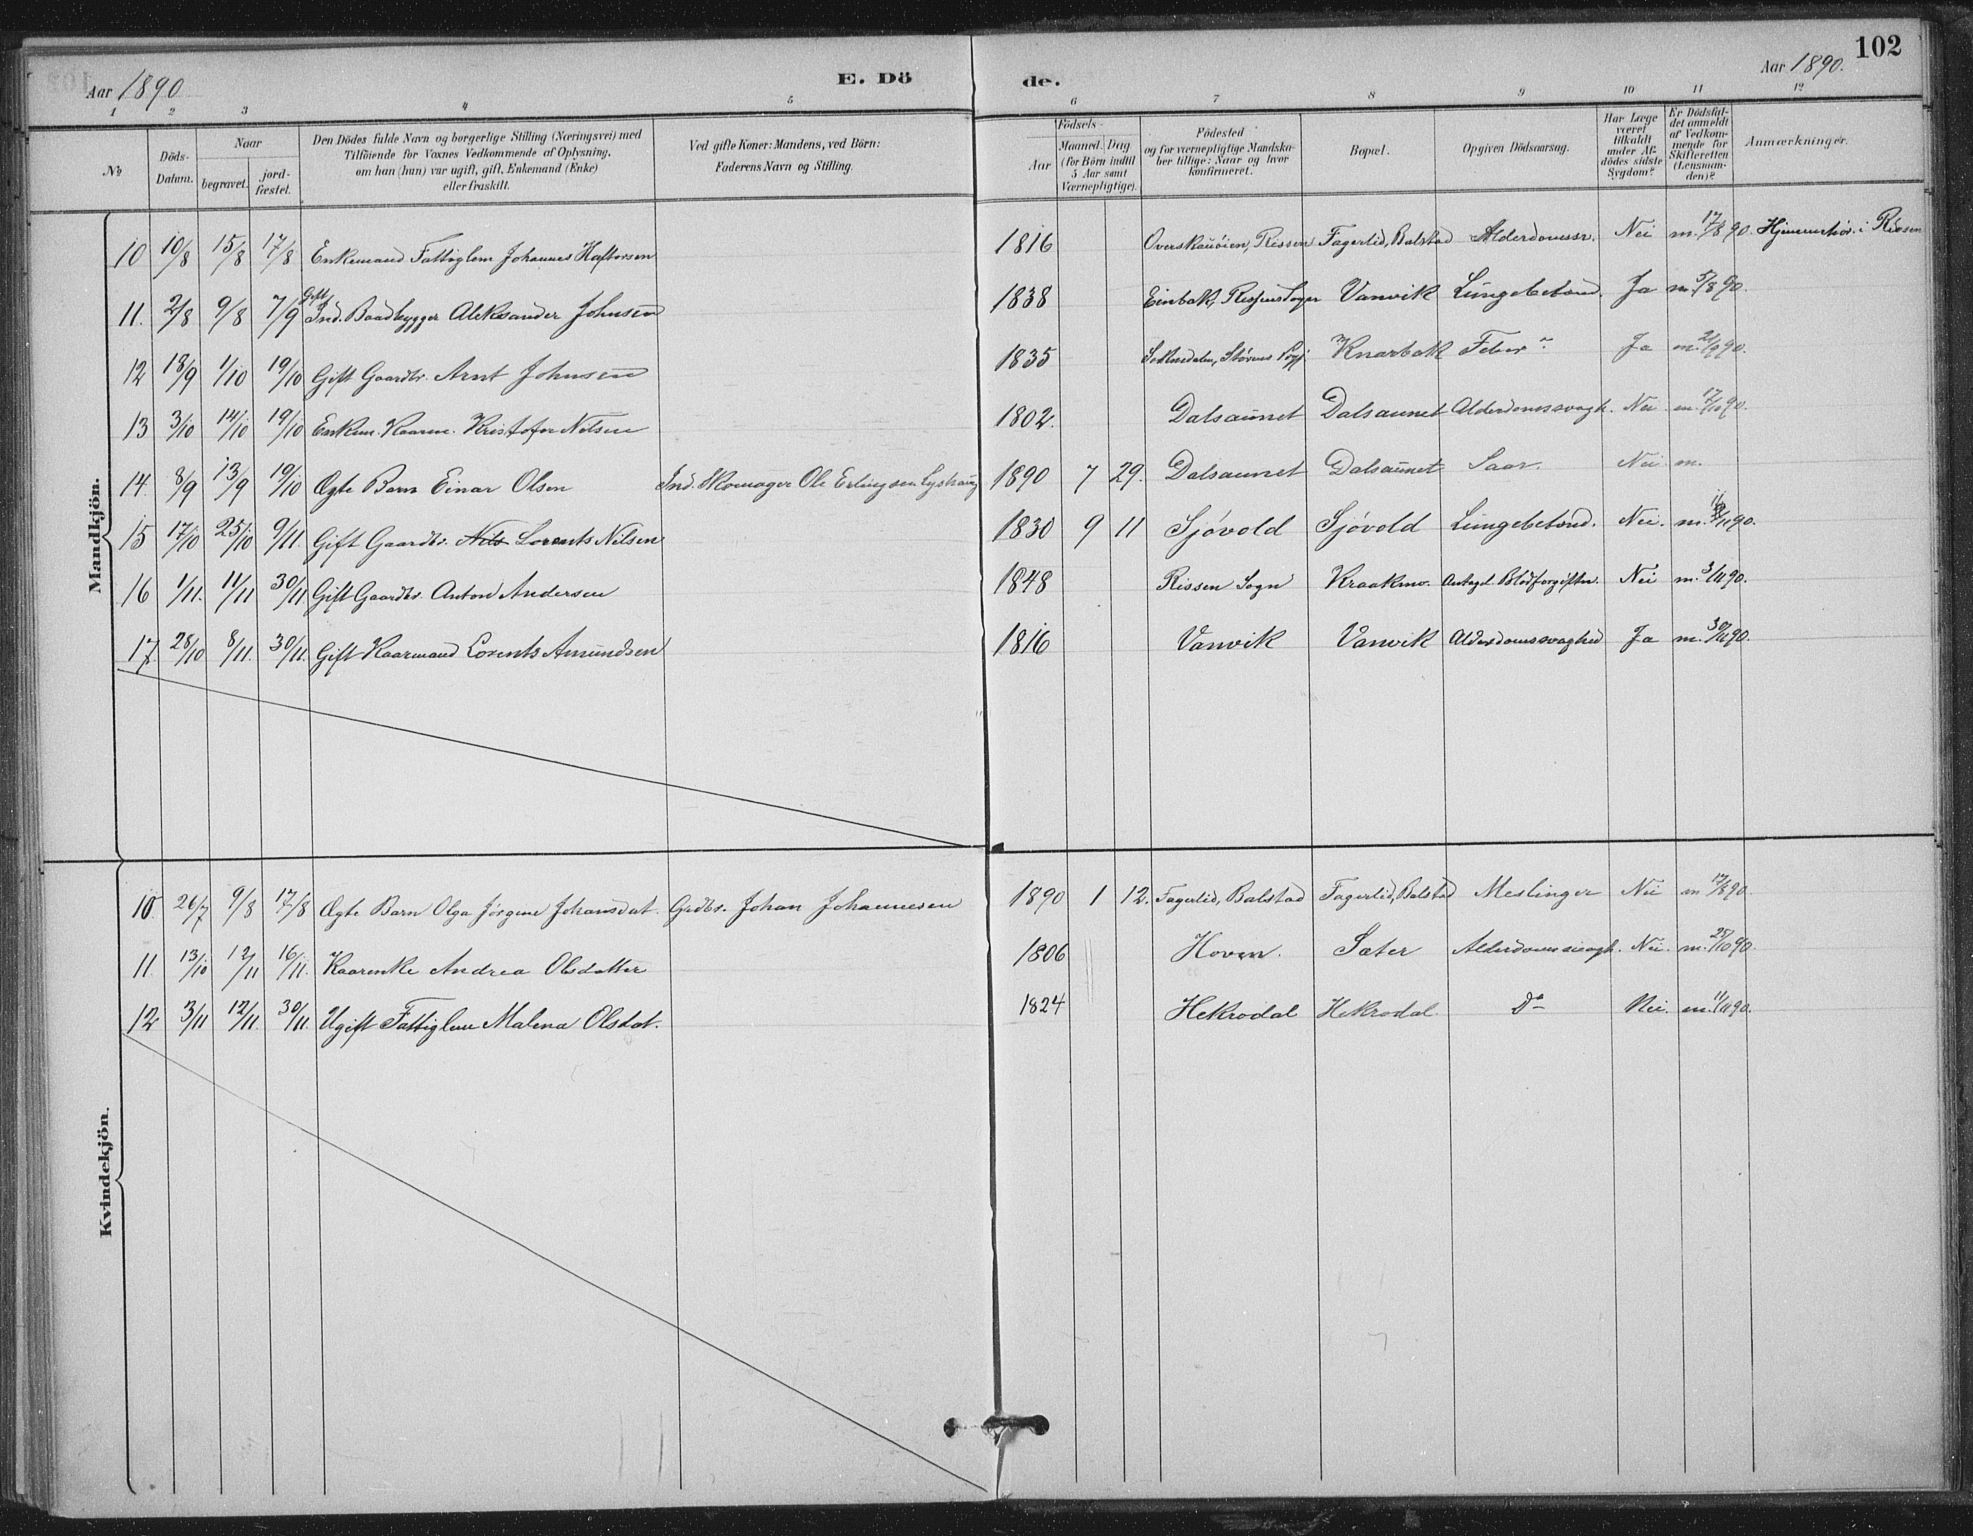 102
Aar 1890
E. Dö
de.
Aar 1890.
1 2 3 4 5 6 7 8 9 10 11 12
№
Döds-Datum.
Naar
begravet.
jord-fæstet.
Den Dödes fulde Navn og borgerlige Stilling (Næringsvei) med
Tilföiende for Voxnes Vedkommende af Oplysning,
om han (hun) var ugift, gift, Enkemand (Enke)
eller fraskilt.
Ved gifte Koner: Mandens, ved Börn:
Faderens Navn og Stilling.
Födsels-
Aar
Maaned. Dag
(for Börn indtil
5 Aar samt
Værnepligtige).
Födested
og for værnepligtige Mandska-
ber tillige: Naar og hvor
konfirmeret.
Bopæl.
Opgiven Dödsaarsag.
Har Læge
været
tilkaldt
under Af-
dödes sidste
Sygdom?
Er Dödsfal-
det anmeldt
af Vedkom-
mende for
Skifteretten
(Lensman-
den)?
Anmærkninger.
Mandkjön.
10 10/8 15/8 17/8 Enkemand Fattiglem Johannes Haftorsen 1816 Overskauöien, Rissen Fagerlid, Balstad Alderdomssv. Nei m. 17/8 90 Hjemmehör. i Rissen
11. 2/8 9/8 7/9 Gift Ind. Baadbygger Aleksander Johnsen 1838 Einbak, Rissens Sogn Vanvik Lungebetænd. Ja m. 5/8 90.
12 18/9 1/10 19/10 Gift Gaardbr. Arnt Johnsen 1835 Soknedalen, Störens Knarbak Feber Ja m. 21/9 90.
13 3/10 14/10 19/10 Enkem. Kaarm. Kristofer Nilsen 1802. Dalsaunet Dalsaunet Alderdomssvagh. Nei m. 17/10 90.
14. 8/9 13/9 19/10 Ægte Barn Einar Olsen Ind. Skomager Ole Erlingsen 1890 7 29. Dalsaunet Dalsaunet Saar. Nei m.
15 17/10 25/10 9/11. Gift Gaardbr. Nils Lorents Nilsen 1830 9 11 Sjövold Sjövold Lungebetænd. Nei. m. /11 90.
16 1/11. 11/11 30/11 Gift Gaardbr. Anton Andersen 1848 Rissen Sogn Kraakmo. Antagel. Blodforgiftn. Nei m. 3/11 90.
17. 28/10 8/11. 30/11. Gift Kaarmand Lorents Amundsen 1816 Vanvik Vanvik Alderdomssvaghed Ja m. 30/11 90.
Kvindekjön.
10 26/7 9/8 17/8 Ægte Barn Olga Jörgine Johansdat. Grdbr. Johan Johannesen 1890 1 12. Fagerlid, Balstad Fagerlid, Balstad Meslinger Nei m 17/8 90.
11. 13/10 12/11 16/11. Kaarenke Andrea Olsdatter 1806 Hoven. Sæter Alderdomssvagh. Nei. m. 25/10 90.
12 3/11 12/11. 30/11. Ugift Fattiglem Malena Olsdat. 1824 Hekrodal Hekrodal Do Nei. m. 11/11 90.